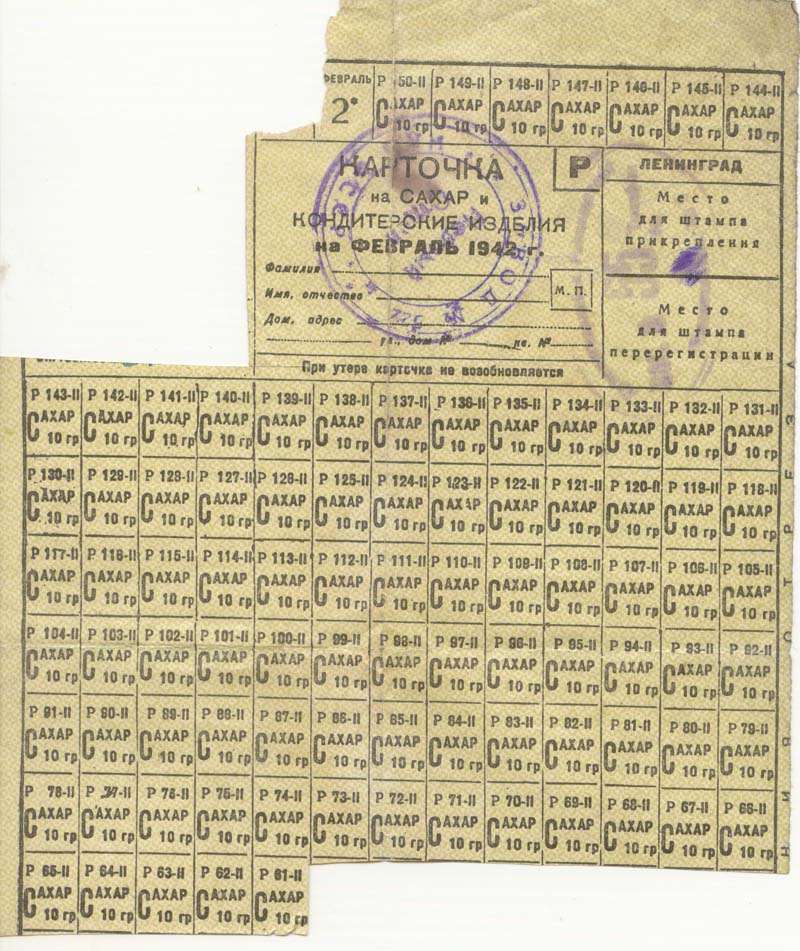 ФЕВРАЛЬ Р 150-II Р 149-II Р 148-II Р 147-II Р 146-II Р 145-II Р 144-II
2* САХАР САХАР САХАР САХАР САХАР САХАР САХАР
10 гр 10 гр 10 гр 10 гр 10 гр 10 гр 10 гр
КАРТОЧКА Р
на САХАР и
КОНДИТЕРСКИЕ ИЗДЕЛИЯ
на ФЕВРАЛЬ 1942 г.
Фамилия
Имя, отчество
М. П.
Дом. адрес
ул., дом № кв. №
ЛЕНИНГРАД
Место
для штампа
прикрепления
Место
для штампа
перерегистрации
При утере карточка не возобновляется
ЗАВОД №
Р 143-II Р 142-II Р 141-II Р 140-II Р 139-II Р 138-II Р 137-II Р 136-II Р 135-II Р 134-II Р 133-II Р 132-II Р 131-II
САХАР САХАР САХАР САХАР САХАР САХАР САХАР САХАР САХАР САХАР САХАР САХАР САХАР
10 гр 10 гр 10 гр 10 гр 10 гр 10 гр 10 гр 10 гр 10 гр 10 гр 10 гр 10 гр 10 гр
Р 130-II Р 129-II Р 128-II Р 127-II Р 126-II Р 125-II Р 124-II Р 123-II Р 122-II Р 121-II Р 120-II Р 119-II Р 118-II
САХАР САХАР САХАР САХАР САХАР САХАР САХАР САХАР САХАР САХАР САХАР САХАР САХАР
10 гр 10 гр 10 гр 10 гр 10 гр 10 гр 10 гр 10 гр 10 гр 10 гр 10 гр 10 гр 10 гр
Р 117-II Р 116-II Р 115-II Р 114-II Р 113-II Р 112-II Р 111-II Р 110-II Р 109-II Р 108-II Р 107-II Р 106-II Р 105-II
САХАР САХАР САХАР САХАР САХАР САХАР САХАР САХАР САХАР САХАР САХАР САХАР САХАР
10 гр 10 гр 10 гр 10 гр 10 гр 10 гр 10 гр 10 гр 10 гр 10 гр 10 гр 10 гр 10 гр
Р 104-II Р 103-II Р 102-II Р 101-II Р 100-II Р 99-II Р 98-II Р 97-II Р 96-II Р 95-II Р 94-II Р 93-II Р 92-II
САХАР САХАР САХАР САХАР САХАР САХАР САХАР САХАР САХАР САХАР САХАР САХАР САХАР
10 гр 10 гр 10 гр 10 гр 10 гр 10 гр 10 гр 10 гр 10 гр 10 гр 10 гр 10 гр 10 гр
Р 91-II Р 90-II Р 89-II Р 88-II Р 87-II Р 86-II Р 85-II Р 84-II Р 83-II Р 82-II Р 81-II Р 80-II Р 79-II
САХАР САХАР САХАР САХАР САХАР САХАР САХАР САХАР САХАР САХАР САХАР САХАР САХАР
10 гр 10 гр 10 гр 10 гр 10 гр 10 гр 10 гр 10 гр 10 гр 10 гр 10 гр 10 гр 10 гр
Р 78-II Р 77-II Р 76-II Р 75-II Р 74-II Р 73-II Р 72-II Р 71-II Р 70-II Р 69-II Р 68-II Р 67-II Р 66-II
САХАР САХАР САХАР САХАР САХАР САХАР САХАР САХАР САХАР САХАР САХАР САХАР САХАР
10 гр 10 гр 10 гр 10 гр 10 гр 10 гр 10 гр 10 гр 10 гр 10 гр 10 гр 10 гр 10 гр
Р 65-II Р 64-II Р 63-II Р 62-II Р 61-II
САХАР САХАР САХАР САХАР САХАР
10 гр 10 гр 10 гр 10 гр 10 гр